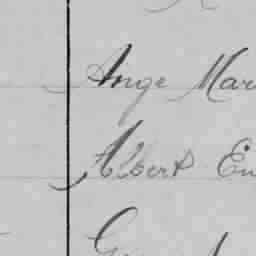 Ange Mar
Albert En